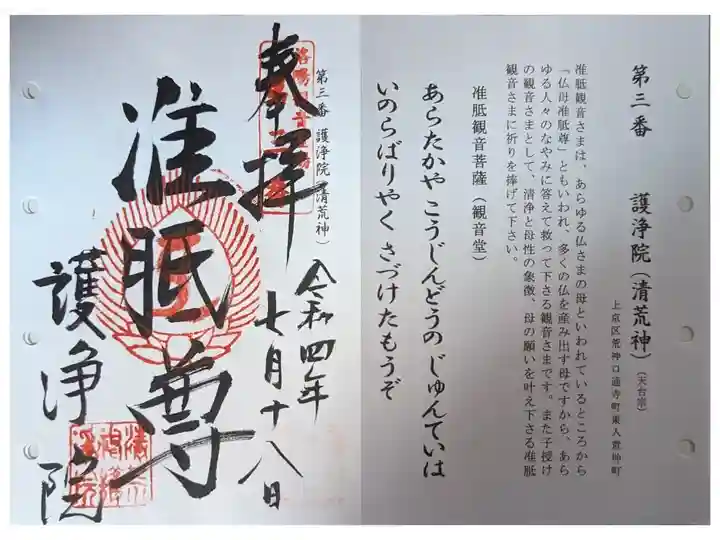 第三番　護浄院（清荒神）（天台宗）
上京区荒神口通寺町東入荒神町
准胝観音さまは、あらゆる仏さまの母といわれているところから
「仏母准胝尊」ともいわれ、多くの仏を産み出す母ですから、あら
ゆる人々のなやみに答えて救って下さる観音さまです。また子授け
の観音さまとして、清浄と母性の象徴、母の願いを叶え下さる准胝
観音さまに祈りを捧げて下さい。
准胝観音菩薩（観音堂）
あらたかや こうじんどうの じゅんていは
いのらばりやく さづけたもうぞ
第三番 護浄院（清荒神）
奉拝
令和四年
七月十八日
准胝尊
護浄院